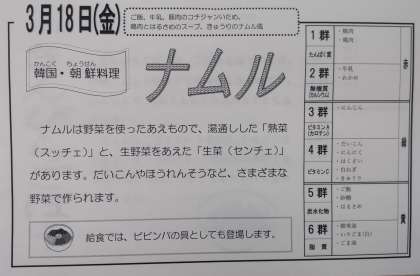 3月18日(金)
ご飯、牛乳、豚肉のコチジャンいため、
鶏肉とはるさめのスープ、きゅうりのナムル風
かんこく ちょうせん
韓国・朝鮮料理
ナムル
ナムルは野菜を使ったあえもので、湯通しした「熟菜
（スッチェ）」と、生野菜をあえた「生菜（センチェ）」
があります。だいこんやほうれんそうなど、さまざまな
野菜で作られます。
給食では、ビビンバの具としても登場します。
1群
たんぱく質
・豚肉
・鶏肉
2群
無機質
(カルシウム)
・牛乳
・わかめ
赤
3群
ビタミンA
(カロテン)
・にんじん
4群
ビタミンC
・だいこん
・にんにく
・はくさい
・白ねぎ
・きゅうり
緑
5群
炭水化物
・ご飯
・砂糖
・はるさめ
6群
脂質
・いりごま(白)
・ごま油
黄